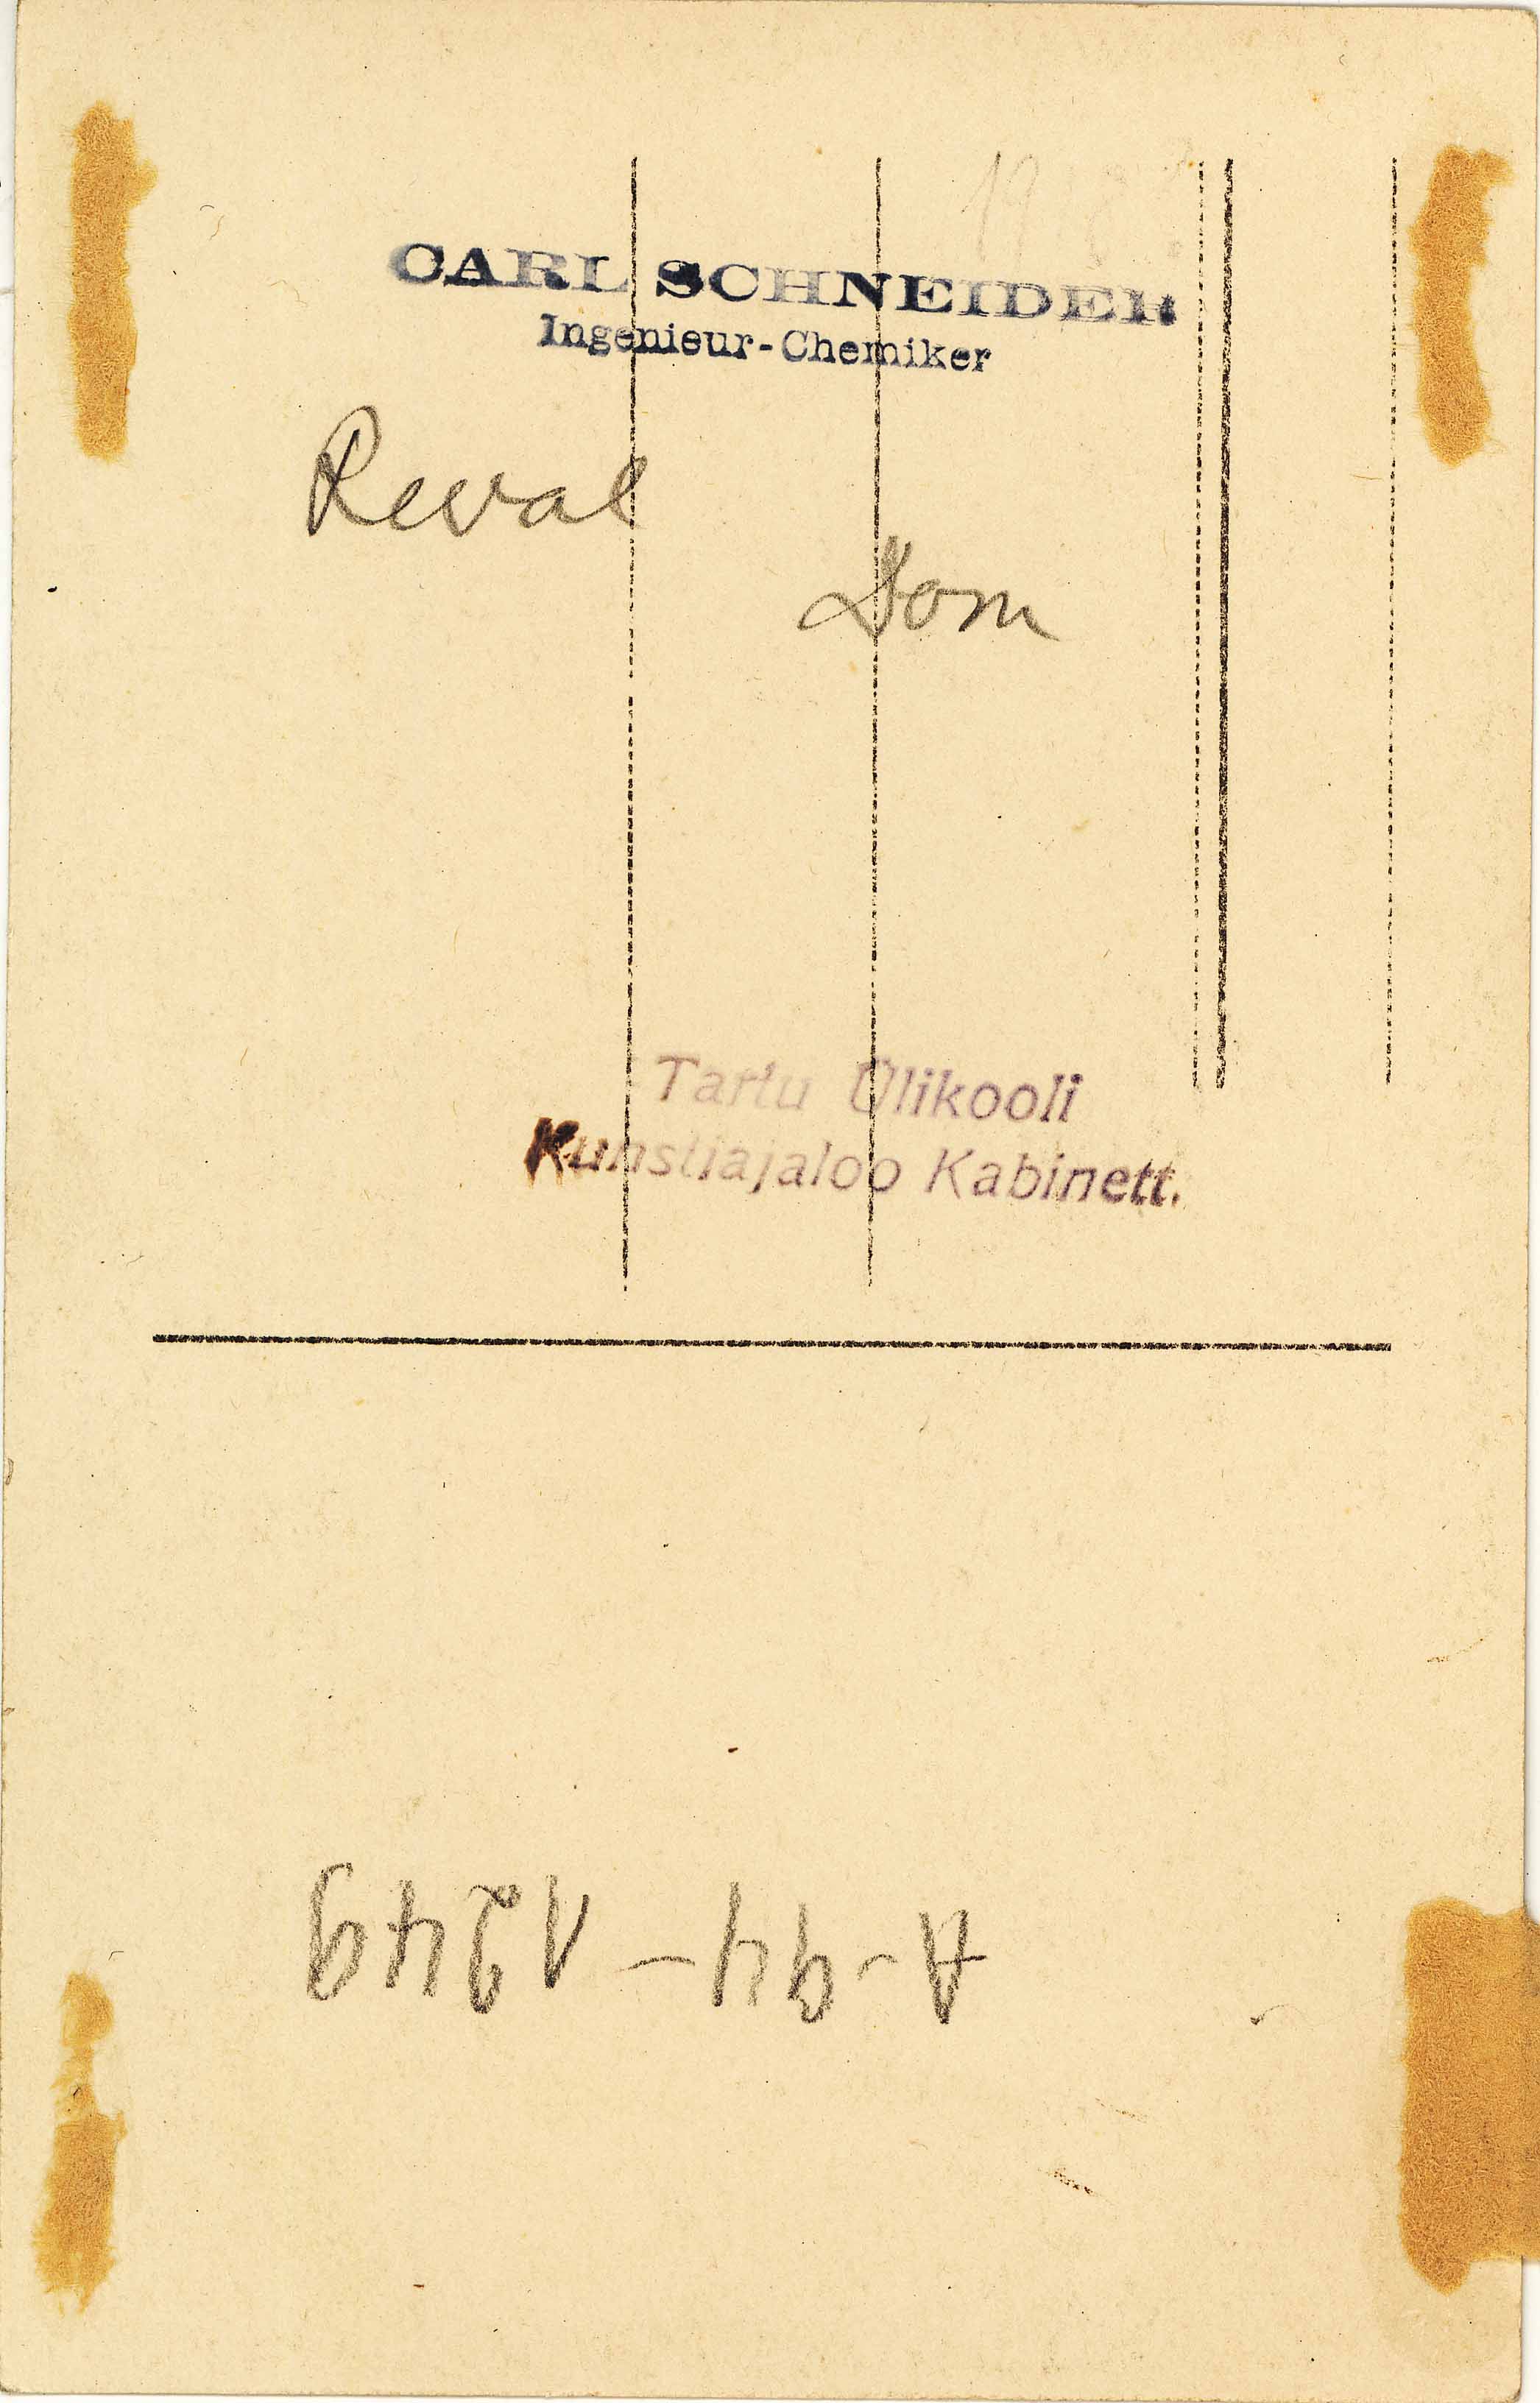 19
CARL SCHNEIDER
Ingenieur-Chemiker
Reval
Dom
Tartu Ülikooli
Kunstiajaloo Kabinett.
A-94-1249